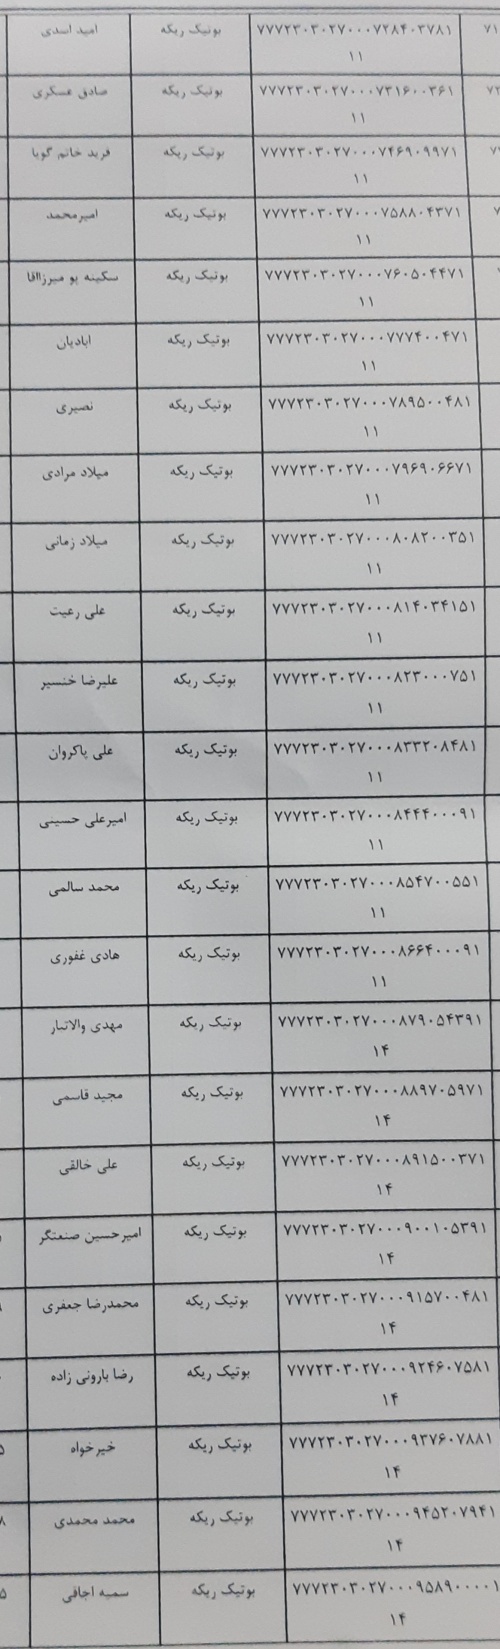 ۷۱ ۷۷۷۲۳۰۳۰۲۷۰۰۰۷۲۸۴۰۳۷۸۱ بوتیک ریکه امید اسدی
۱۱
۷۷۷۲۳۰۳۰۲۷۰۰۰۷۳۱۶۰۰۳۶۱ بوتیک ریکه صادق عسکری
۱۱
۷۷۷۲۳۰۳۰۲۷۰۰۰۷۴۶۹۰۹۹۷۱ بوتیک ریکه فرید خاتم گویا
۱۱
۷۷۷۲۳۰۳۰۲۷۰۰۰۷۵۸۸۰۴۳۷۱ بوتیک ریکه امیرمحمد
۱۱
۷۷۷۲۳۰۳۰۲۷۰۰۰۷۶۰۵۰۴۴۷۱ بوتیک ریکه سکینه یو میرزااقا
۱۱
۷۷۷۲۳۰۳۰۲۷۰۰۰۷۷۷۴۰۰۴۷۱ بوتیک ریکه ابادیان
۱۱
۷۷۷۲۳۰۳۰۲۷۰۰۰۷۸۹۵۰۰۴۸۱ بوتیک ریکه نصیری
۱۱
۷۷۷۲۳۰۳۰۲۷۰۰۰۷۹۶۹۰۶۶۷۱ بوتیک ریکه میلاد مرادی
۱۱
۷۷۷۲۳۰۳۰۲۷۰۰۰۸۰۸۲۰۰۳۵۱ بوتیک ریکه میلاد زمانی
۱۱
۷۷۷۲۳۰۳۰۲۷۰۰۰۸۱۴۰۳۴۱۵۱ بوتیک ریکه علی رعیت
۱۱
۷۷۷۲۳۰۳۰۲۷۰۰۰۸۲۳۰۰۰۷۵۱ بوتیک ریکه علیرضا خنسیر
۱۱
۷۷۷۲۳۰۳۰۲۷۰۰۰۸۳۳۲۰۸۴۸۱ بوتیک ریکه علی پاکروان
۱۱
۷۷۷۲۳۰۳۰۲۷۰۰۰۸۴۴۴۰۰۰۹۱ بوتیک ریکه امیرعلی حسینی
۱۱
۷۷۷۲۳۰۳۰۲۷۰۰۰۸۵۴۷۰۰۵۵۱ بوتیک ریکه محمد سالمی
۱۱
۷۷۷۲۳۰۳۰۲۷۰۰۰۸۶۶۴۰۰۰۹۱ بوتیک ریکه هادی غفوری
۱۱
۷۷۷۲۳۰۳۰۲۷۰۰۰۸۷۹۰۵۴۳۹۱ بوتیک ریکه مهدی والاتبار
۱۴
۷۷۷۲۳۰۳۰۲۷۰۰۰۸۸۹۷۰۵۹۷۱ بوتیک ریکه مجید قاسمی
۱۴
۷۷۷۲۳۰۳۰۲۷۰۰۰۸۹۱۵۰۰۳۷۱ بوتیک ریکه علی خالقی
۱۴
۷۷۷۲۳۰۳۰۲۷۰۰۰۹۰۰۱۰۵۳۹۱ بوتیک ریکه امیرحسین صنعتگر
۱۴
۷۷۷۲۳۰۳۰۲۷۰۰۰۹۱۵۷۰۰۴۸۱ بوتیک ریکه محمدرضا جعفری
۱۴
۷۷۷۲۳۰۳۰۲۷۰۰۰۹۲۴۶۰۷۵۸۱ بوتیک ریکه رضا بارونی زاده
۱۴
۷۷۷۲۳۰۳۰۲۷۰۰۰۹۳۷۶۰۷۸۸۱ بوتیک ریکه خیرخواه ۵
۱۴
۷۷۷۲۳۰۳۰۲۷۰۰۰۹۴۵۲۰۷۹۴۱ بوتیک ریکه محمد محمدی ۸
۱۴
۷۷۷۲۳۰۳۰۲۷۰۰۰۹۵۸۹۰۰۰۰۱ بوتیک ریکه سمیه اجاقی ۵
۱۴